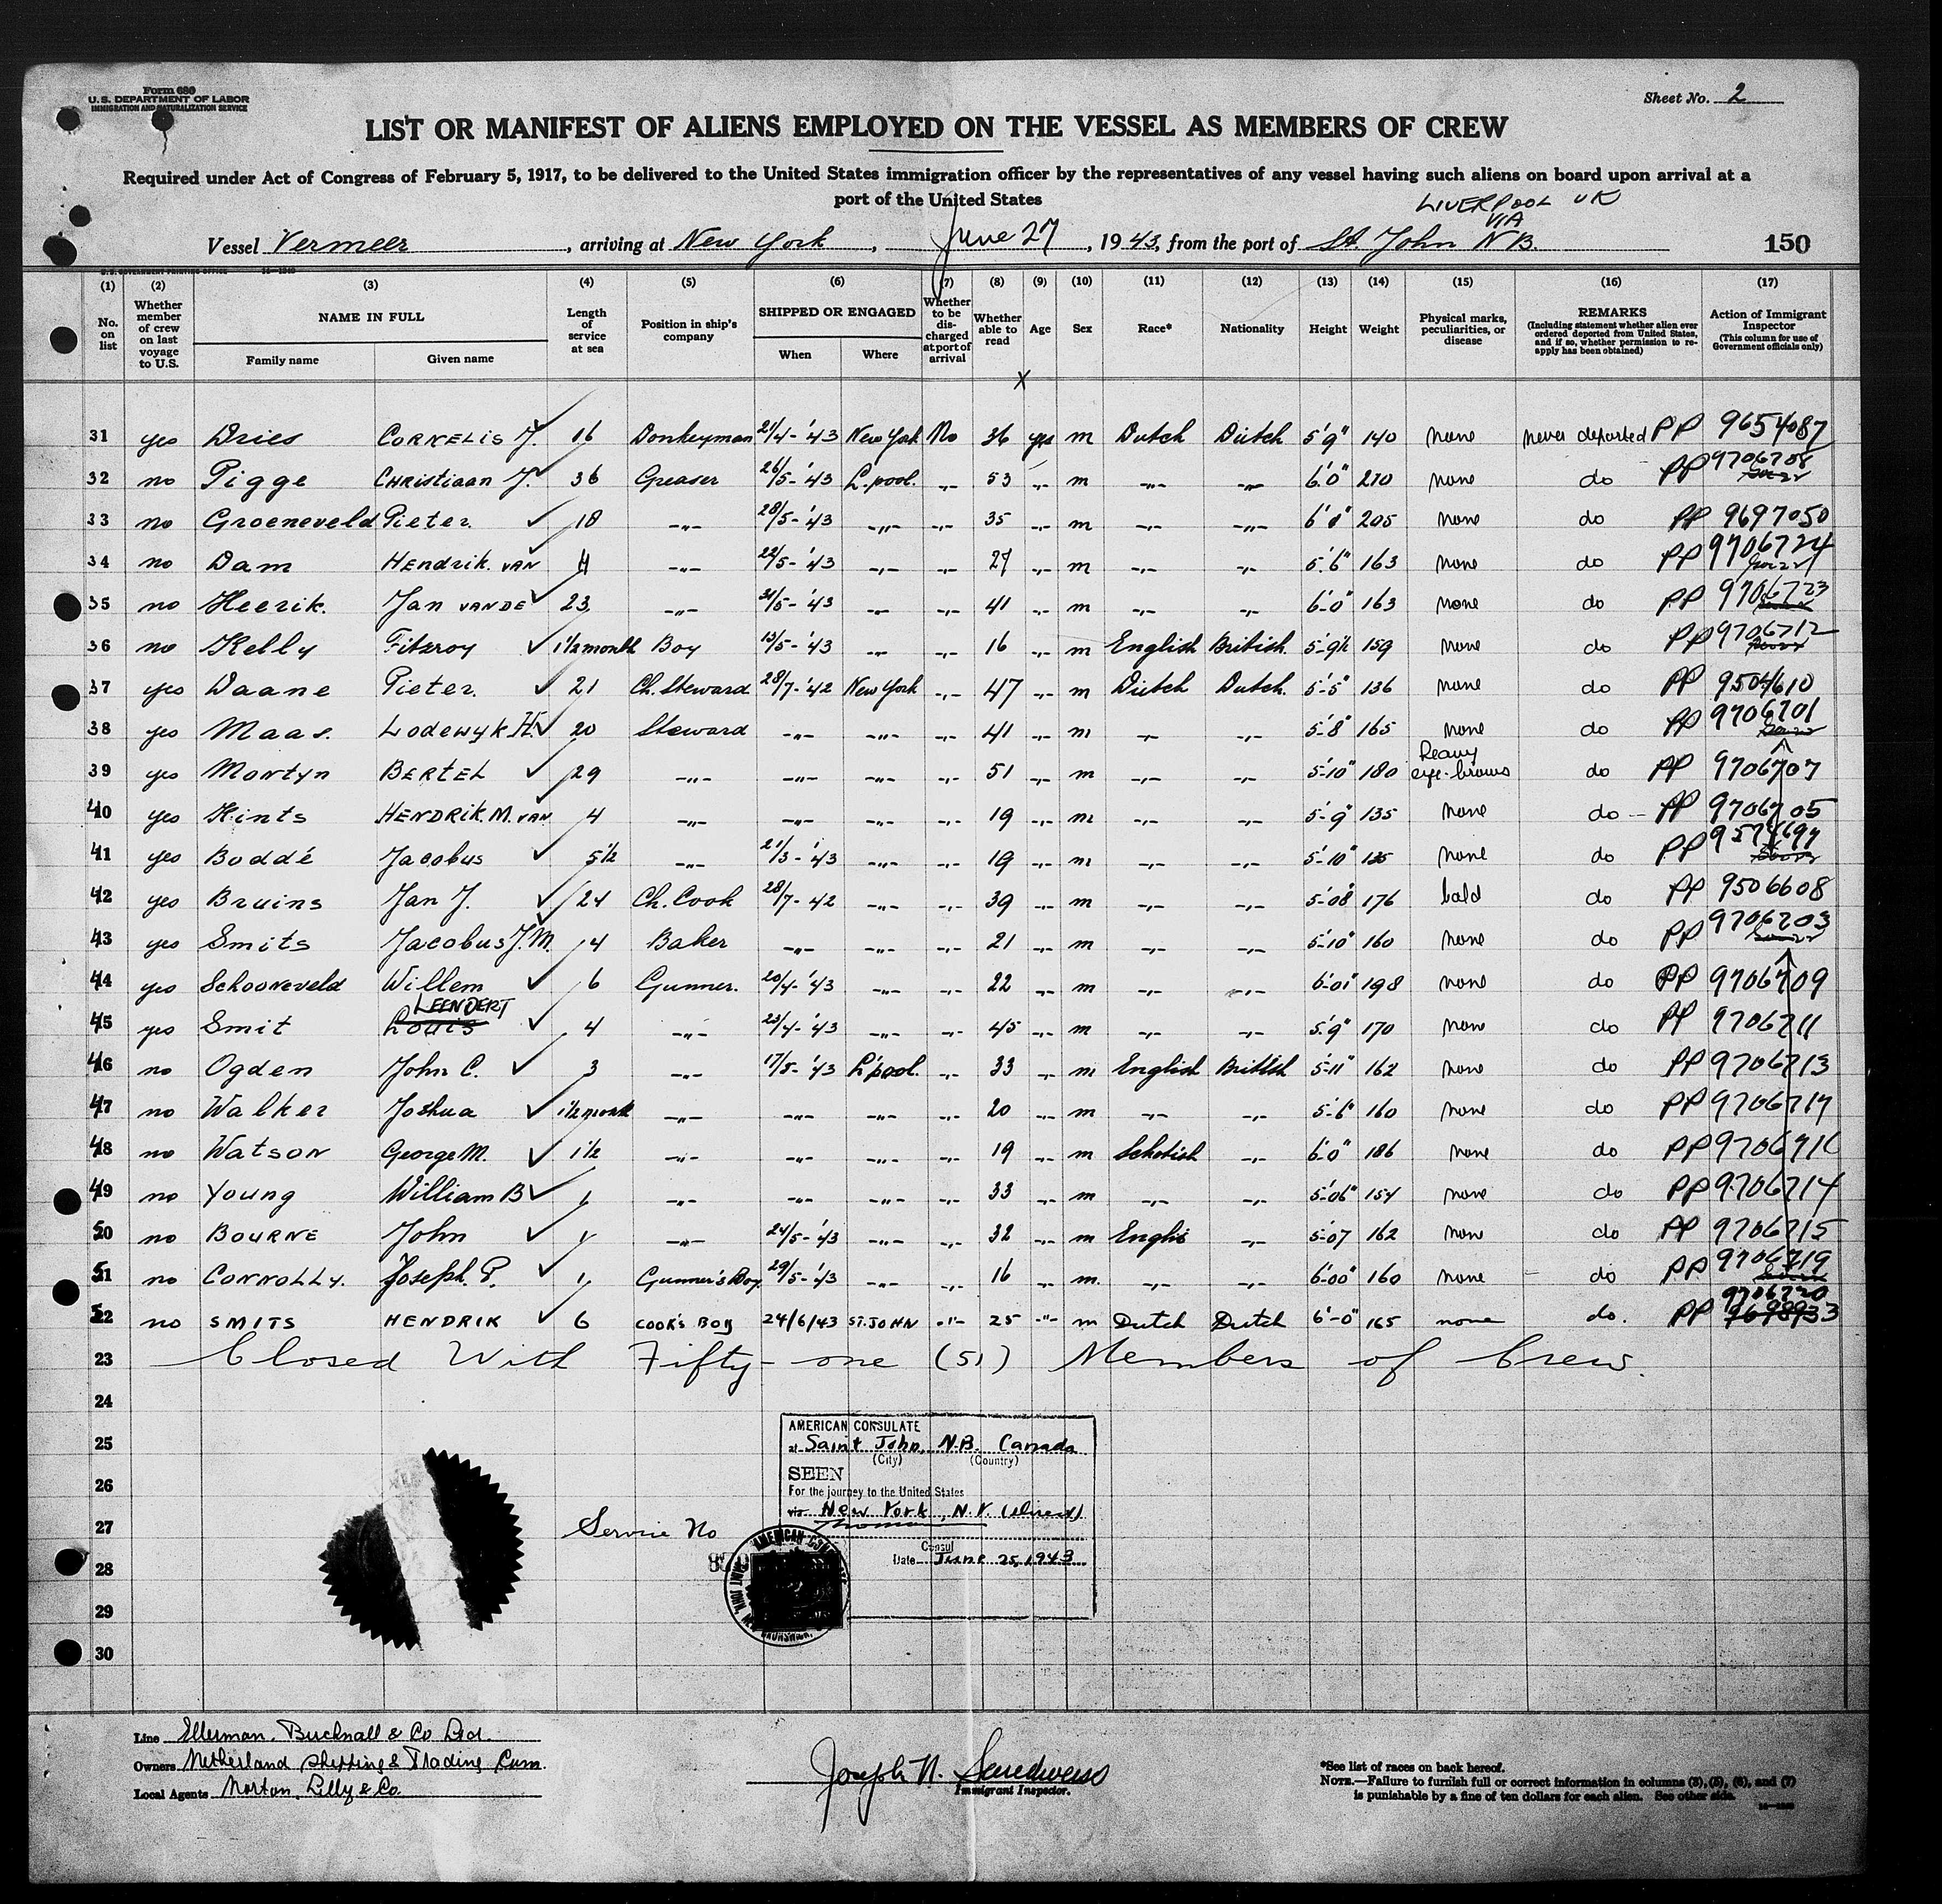 Form 680
U. S. DEPARTMENT OF LABOR
IMMIGRATION AND NATURALIZATION SERVICE
Sheet No. 2
LIST OR MANIFEST OF ALIENS EMPLOYED ON THE VESSEL AS MEMBERS OF CREW
Required under Act of Congress of February 5, 1917, to be delivered to the United States immigration officer by the representatives of any vessel having such aliens on board upon arrival at a
port of the United States
LIVERPOOL UK
VIA
Vessel Vermeer, arriving at New York, June 27, 1943, from the port of St. John N.B. 150
U. S. GOVERNMENT PRINTING OFFICE
(1) (2) (3) (4) (5) (6) (7) (8) (9) (10) (11) (12) (13) (14) (15) (16) (17)
No. on list
Whether member of crew on last voyage to U.S.
NAME IN FULL
Family name
Given name
Length of service at sea
Position in ship's company
SHIPPED OR ENGAGED
When
Where
Whether to be discharged at port of arrival
Whether able to read
Age
Sex
Race*
Nationality
Height
Weight
Physical marks, peculiarities, or disease
REMARKS
(Including statement whether alien ever ordered deported from United States, and if so, whether permission to reapply has been obtained)
Action of Immigrant Inspector
(This column for use of Government officials only)
X
31 yes Dries CORNELIS J. 16 Donkeyman 21/4-'43 New York No 36 yes m Dutch Dutch 5'9" 140 none never deported PP 9654087
32 no Pigge CHRistiaan J. 36 Greaser 26/5-'43 L.pool. -"- 53 -"- m -"- -"- 6'0" 210 none do PP 9706708
33 no Groeneveld Pieter. 18 -"- 28/5-'43 -"- -"- 35 -"- m -"- -"- 205 none do PP 9697050
34 no Dam HEndrik. VAN 4 -"- 22/5-'43 -"- -"- 27 -"- m -"- -"- 5'6" 163 none do PP 9706724
35 no Heerik. Jan VANDE 23 -"- 31/5-'43 -"- -"- 41 -"- m -"- -"- 6'-0" 163 none do PP 9706723
36 no Kelly Fitzroy 1½ month Boy 13/5-'43 -"- -"- 16 -"- m English British. 5'-9½ 159 none do PP 9706712
37 yes Daane Pieter. 21 Ch. Steward 28/7-'42 New York -"- 47 -"- m Dutch Dutch. 5'-5" 136 none do PP 9504610
38 yes Maas. Lodewyk H. 20 Steward -"- -"- -"- 41 -"- m -"- -"- 5'-8" 165 none do PP 9706701
39 yes Martyn BERTEL 29 -"- -"- -"- -"- 51 -"- m -"- -"- 5'-10" 180 Heavy eye-brows do PP 9706707
40 yes Hints HENDRIK. M. VAN 4 -"- -"- -"- -"- 19 -"- m -"- -"- 5'-9" 135 none do PP 9706705
41 yes Boddé Jacobus 5½ -"- 21/3-'43 -"- -"- 19 -"- m -"- -"- 5'-10" none do PP 9574697
42 yes Bruins Jan J. 24 Ch. Cook 28/7-42 -"- -"- 39 -"- m -"- -"- 5'-08" 176 bald do PP 9506608
43 yes Smits Jacobus J. M. 4 Baker -"- -"- -"- 21 -"- m -"- -"- 5'-10" 160 none do PP 9706703
44 yes Schooneveld Willem 6 Gunner. 20/4-'43 -"- -"- 22 -"- m -"- -"- 6'-01" 198 none do PP 9706709
45 yes Smit Louis LEENDERT 4 -"- 23/4-'43 -"- -"- 45 -"- m -"- -"- 5'9" 170 none do PP 9706711
46 no Ogden John C. 3 -"- 17/5-'43 L'pool. -"- 33 -"- m English British 5'-11" 162 none do PP 9706713
47 no Walker Joshua 1½ month -"- -"- -"- -"- 20 -"- m -"- -"- 5'-6" 160 none do PP 9706717
48 no Watson George M. 1½ -"- -"- -"- -"- 19 -"- m Schotish -"- 6'-0" 186 none do PP 9706716
49 no Young William B -"- -"- -"- -"- 33 -"- m -"- -"- 5'-06" 154 none do PP 9706714
50 no BOURNE John -"- 24/5-'43 -"- -"- 32 -"- m Englis -"- 5'-07 162 none do PP 9706715
51 no CONNOLLY. Joseph. P. Gunner's Boy. 29/5-'43 -"- -"- 16 -"- m. -"- -"- 6'-00" 160 none do PP 9706719
52 no SMITS HENDRIK 6 COOK'S BOY 24/6/43 ST. JOHN -"- 25 -"- m Dutch Dutch 6'-0" 165 none do. PP 9706720 9698933
23 Closed With Fifty-one (51) Members of Crew.
24
25
26
27
28
29
30
AMERICAN CONSULATE
at Saint John, N.B. Canada
(City) (Country)
SEEN
For the journey to the United States
via New York, N.Y. (direct)
Consul
Date June 25, 1943
Service No
Line Ellerman. Bucknall & Co Ltd.
Owners Netherland Shipping & Trading Com.
Local Agents Norton, Lilly & Co.
Joseph N.
Immigrant Inspector.
*See list of races on back hereof.
NOTE.—Failure to furnish full or correct information in columns (3), (5), (6), and (7)
is punishable by a fine of ten dollars for each alien. See other side.